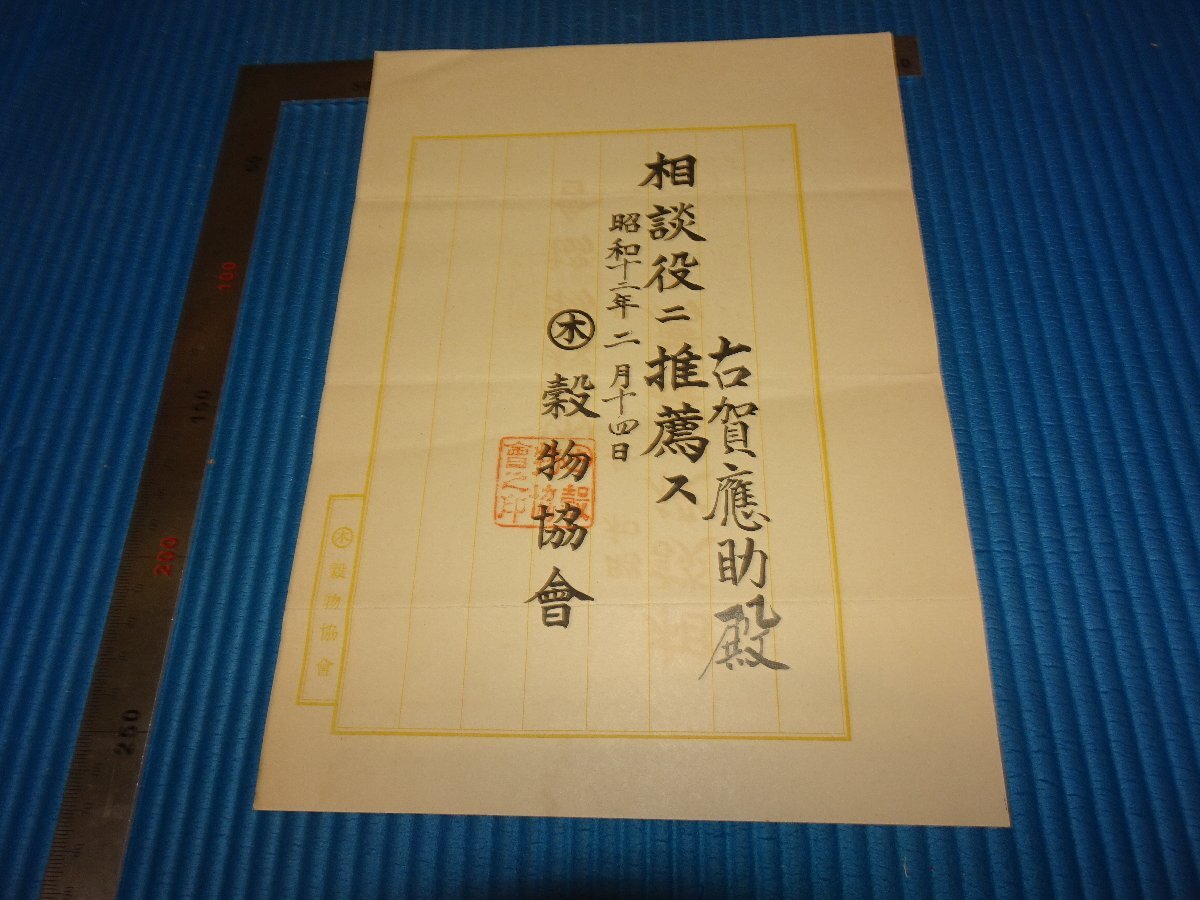 古賀應助殿
相談役ニ推薦ス
昭和十二年二月十四日
㊍穀物協會
㊍穀物協會
100
150
200
250